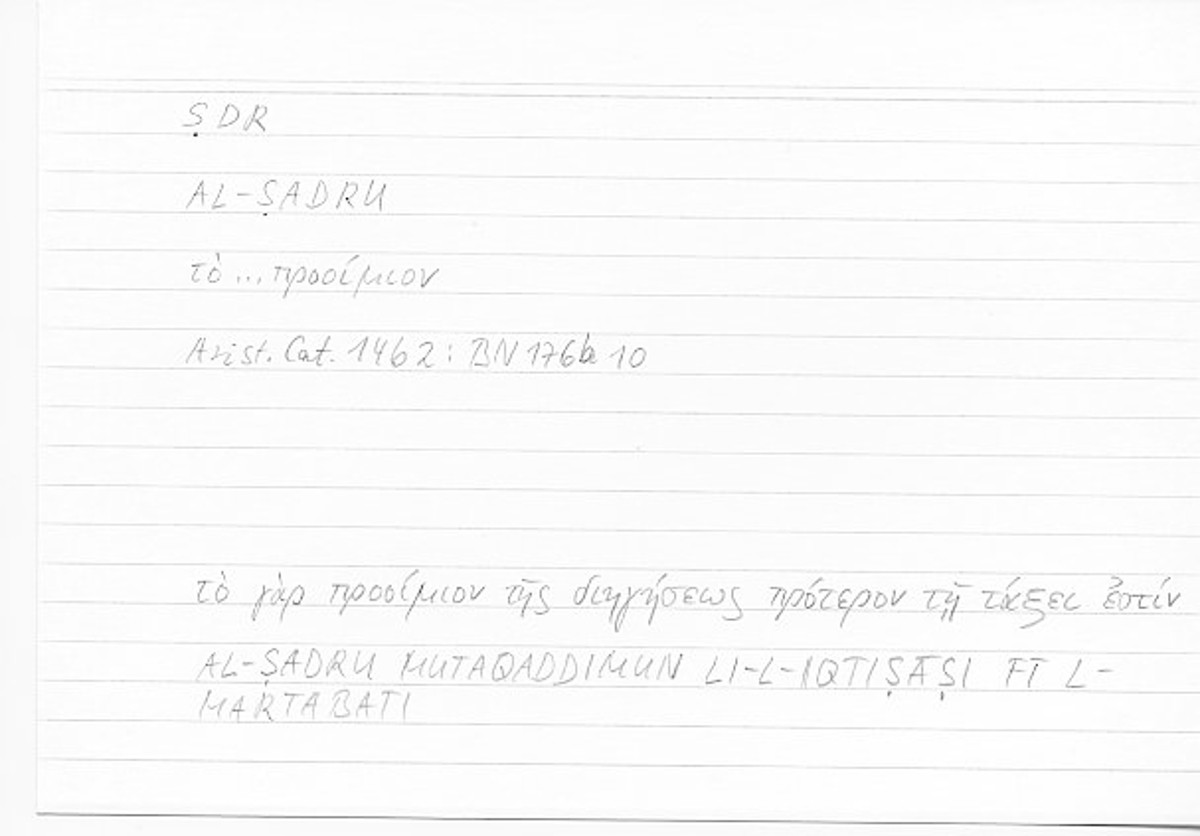 ṢDR
AL-ṢADRU
τὸ ... προοίμιον
Arist. Cat. 14b2: BN 176b 10
τὸ γὰρ προοίμιον τῆς διηγήσεως πρότερον τῇ τάξει ἐστίν
AL-ṢADRU MUTAQADDIMUN LI-L-IQTIṢĀṢI FĪ L-
MARTABATI